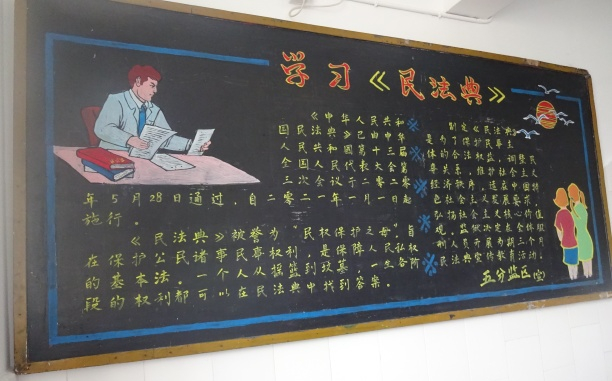 学习《民法典》
《中华人民共和
国民法典》已由中华
人民共和国第十三届
全国人民代表大会第
三次会议于二零二零
年5月28日通过，自二零二一年一月一日起
施行。
《民法典》被誉为“民权保护之母”，旨
在保护公民诸事民事权利，是保障人民私权
的基本法。一个人从摇篮到坟墓，一生各阶
段的权利都可以在民法典中找到答案。
制定《民法典》
是为了保护民事主
体的合法权益，调整民
事关系，维护社会
经济秩序，适应中国特
色社会主义发展要求，
弘扬社会主义核心价值
观。监狱决定在全体服
刑人员开展为期三个月
民法典宣传教育活动。
五分监区(宣)